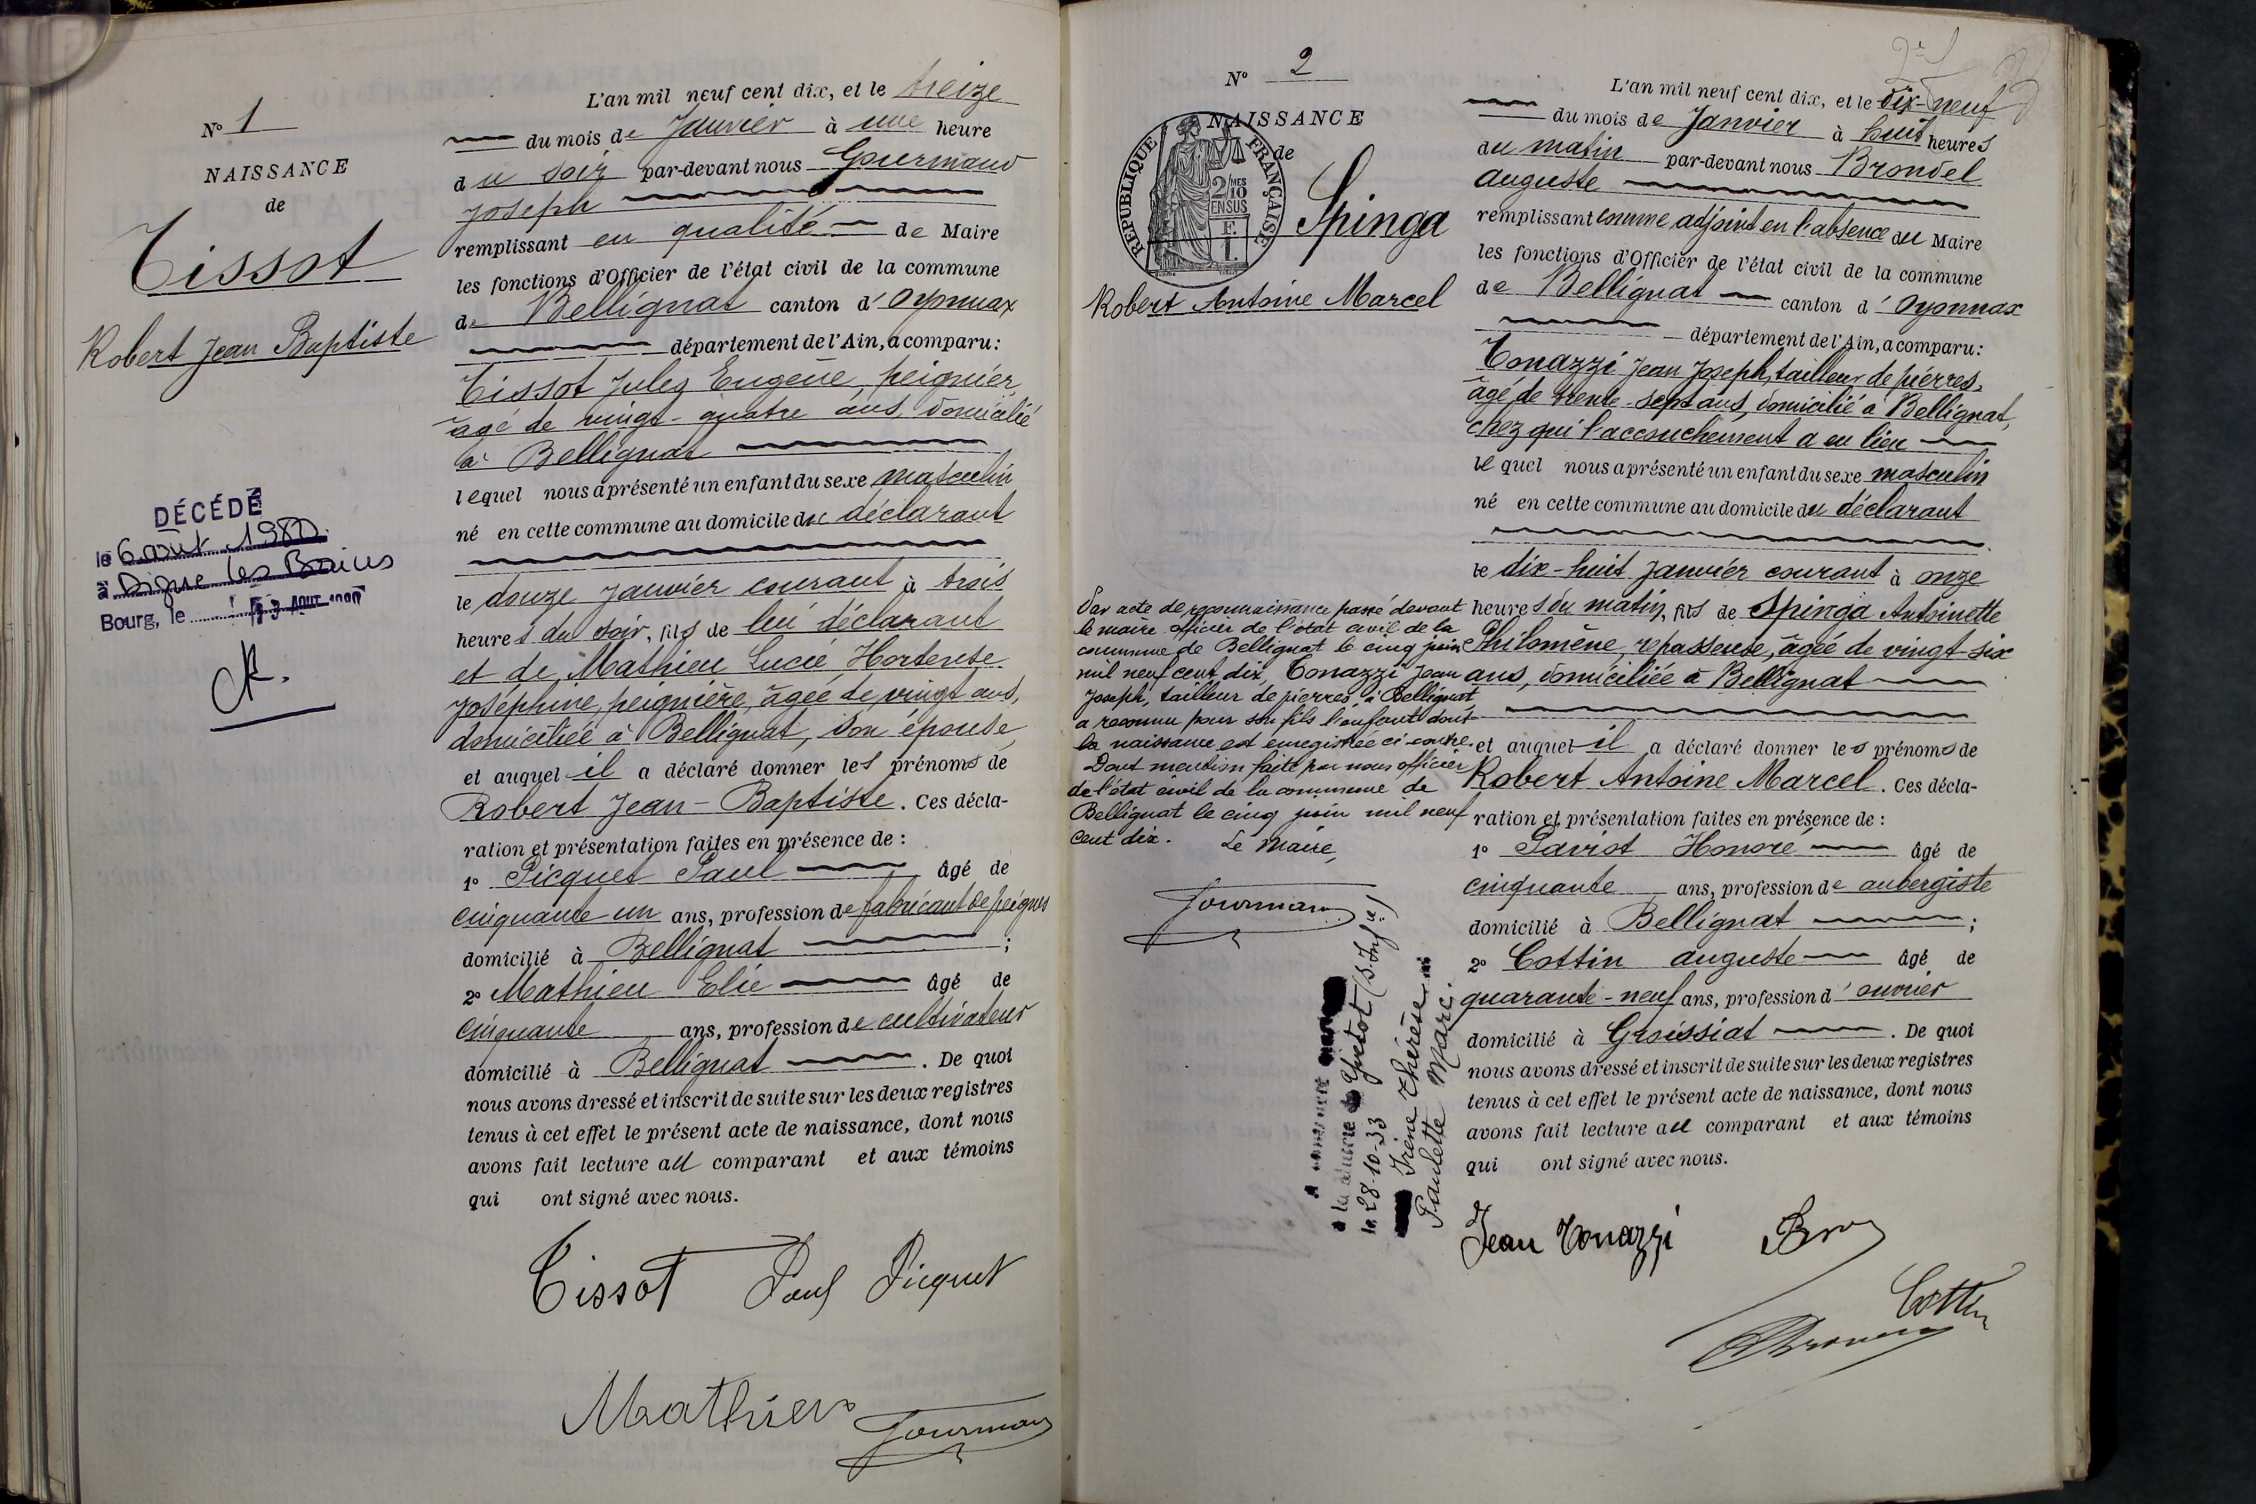 N° 1
NAISSANCE
de
Tissot
Robert Jean Baptiste
DÉCÉDÉ
le 6 août 1980
à Digne les Bains
Bourg, le 13 AOUT
L'an mil neuf cent dix, et le treize
du mois de Janvier à une heure
du soir par-devant nous Gourmand
Joseph
remplissant en qualité de Maire
les fonctions d'Officier de l'état civil de la commune
de Bellignat canton d'Oyonnax
département de l'Ain, a comparu:
Tissot Jules Eugène, peignier,
âgé de vingt-quatre ans, domicilié
à Bellignat
lequel nous a présenté un enfant du sexe masculin
né en cette commune au domicile du déclarant
le douze janvier courant à trois
heures du soir, fils de lui déclarant
et de Mathieu Lucie Hortense
Joséphine, peignière, âgée de vingt ans,
domiciliée à Bellignat, son épouse,
et auquel il a déclaré donner les prénoms de
Robert Jean-Baptiste. Ces décla-
ration et présentation faites en présence de :
1° Picquet Paul âgé de
cinquante un ans, profession de fabricant de peignes
domicilié à Bellignat ;
2° Mathieu Elie âgé de
cinquante ans, profession de cultivateur
domicilié à Bellignat. De quoi
nous avons dressé et inscrit de suite sur les deux registres
tenus à cet effet le présent acte de naissance, dont nous
avons fait lecture au comparant et aux témoins
qui ont signé avec nous.
Tissot Paul Picquet
Mathieu Gourmand
N° 2
NAISSANCE
de
RÉPUBLIQUE FRANÇAISE
2/10 MES
EN SUS
F.
1.
Spinga
Robert Antoine Marcel
Par acte de reconnaissance passé devant
le maire officier de l'état civil de la
commune de Bellignat le cinq juin
mil neuf cent dix, Tonazzi Jean
Joseph, tailleur de pierres, à Bellignat,
a reconnu pour son fils l'enfant dont
la naissance est enregistrée ci-contre.
Dont mention faite par nous officier
de l'état civil de la commune de
Bellignat le cinq juin mil neuf
cent dix. Le Maire,
Gourmand
à la mairie Yvetot (S. Infre)
le 28-10-33
Irène Thérèse
Paulette Marc.
L'an mil neuf cent dix, et le dix-neuf
du mois de Janvier à huit heures
du matin par-devant nous Brondel
Auguste
remplissant comme adjoint en l'absence du Maire
les fonctions d'Officier de l'état civil de la commune
de Bellignat canton d'Oyonnax
département de l'Ain, a comparu:
Tonazzi Jean Joseph, tailleur de pierres,
âgé de trente-sept ans, domicilié à Bellignat,
chez qui l'accouchement a eu lieu
lequel nous a présenté un enfant du sexe masculin
né en cette commune au domicile du déclarant
le dix-huit janvier courant à onze
heures du matin, fils de Spinga Antoinette
Philomène, repasseuse, âgée de vingt-six
ans, domiciliée à Bellignat
et auquel il a déclaré donner les prénoms de
Robert Antoine Marcel. Ces décla-
ration et présentation faites en présence de :
1° Saviot Honoré âgé de
cinquante ans, profession de aubergiste
domicilié à Bellignat ;
2° Cottin Auguste âgé de
quarante-neuf ans, profession d'ouvrier
domicilié à Groissiat. De quoi
nous avons dressé et inscrit de suite sur les deux registres
tenus à cet effet le présent acte de naissance, dont nous
avons fait lecture au comparant et aux témoins
qui ont signé avec nous.
Jean Tonazzi
Cottin